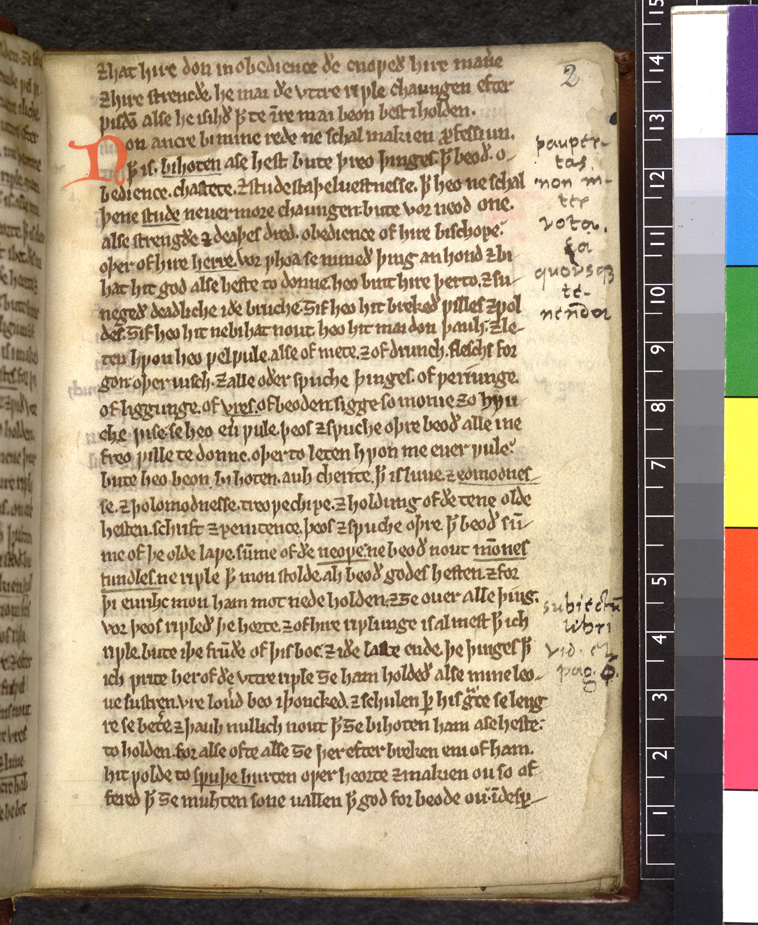 2
⁊hat hire don in obedience ðe cnoweð hire manẽ
⁊hire strencðe. he mai ðe vttre riwle chaungen efter
wisdõ alse he isihð ꝥ te ĩre mai beon best iholden.
Non ancre bi mine rede ne schal makien ꝓfessiun.
ꝥ is. bihoten ase hest bute þreo þinges. ꝥ beoð. o-
bedience. chastete. ⁊studestaþeluestnesse. ꝥ heo ne schal
þene stude neuer more chaungen. bute vor neod one.
alse strengðe ⁊ deaþes dred. obedience of hire bischope.
oþer of hire herre. vor hwoa se nimeð þing an hond ⁊ bi
hat hit god alse heste to donne. heo bint hire þerto. ⁊ su-
negeð deadliche iðe bruche. ȝif heo hit brekeð willes ⁊wol
des. ȝif heo hit ne bihat nout. heo hit mai don þauh. ⁊ le-
ten hwon heo wel wule. alse of mete. ⁊ of drunch. flesch for
gon. oþer uisch. ⁊ alle oðer swuche þinges. of weriunge.
of liggunge. of vres. of beoden. sigge so monie ⁊ o hwu
che wise. se heo euh wule. þeos ⁊ swuche oþre beoð alle ine
freo wille te donne. oþer to leten hwon me euer wule.
bute heo beon bihoten. auh cherite. ꝥ is luue. ⁊ eðmodnes-
se. ⁊ þolomodnesse. treowechipe. ⁊ holding of ðe tene olde
hesten. schrift ⁊ penitence. þeos ⁊ swuche oþre. ꝥ beoð sũ-
me of þe olde lawe. sũme of ðe neowe. ne beoð nout mones
fundles. ne riwle ꝥ mon stolde. ah beoð godes hesten. ⁊ for
þi eurihc mon ham mot nede holden. ⁊ ȝe ouer alle þing.
vor þeos riwleð þe horte. ⁊ of hire riwlunge is al mest ꝥ ich
riwle. bute iþe frũðe of þis boc. ⁊ iðe laste ende. þe þinges ꝥ
ich write her of ðe vttre riwle ȝe ham holdeð alse mine leo-
ue sustren. vre louᷣd beo iþoncked. ⁊ schulen ꝑ his gᷓce se leng
re se betᷣe. ⁊ þauh nullich nout ꝥ ȝe bihoten ham ase heste.
to holden. for alse ofte alse ȝe þer efter breken em of ham.
hit wolde to swuþe hurten ower heorte ⁊ makien ou so of
fered ꝥ ȝe muhten sone uallen ꝥ god forbeode ou. ĩ desꝑ-
pauper-
tas,
non in-
ter
vota.
quousq́
te-
nendor
subiectũ
libri
vid. et
pag. 6.
15
14
13
12
11
10
9
8
7
6
5
4
3
2
1